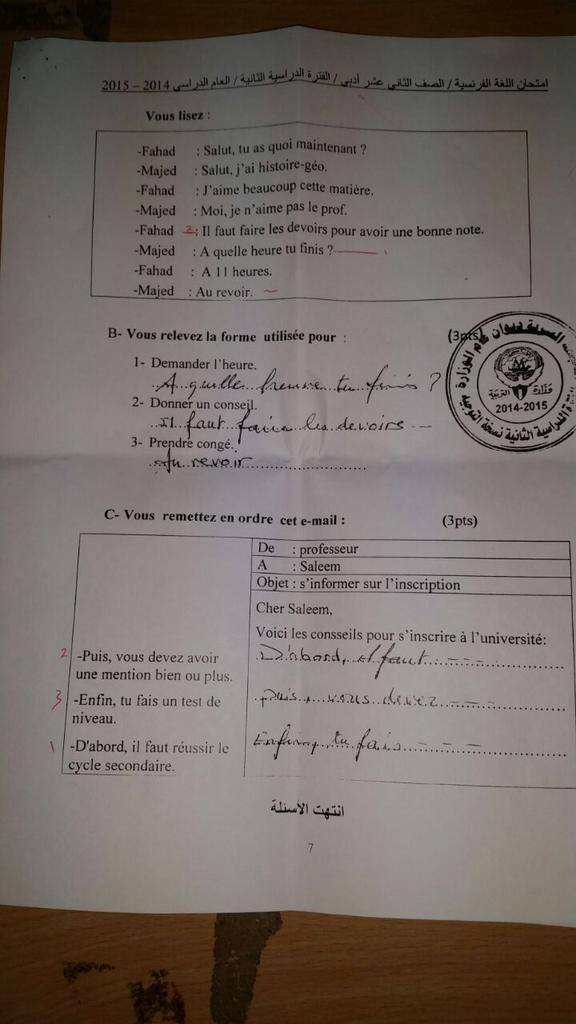 امتحان اللغة الفرنسية / الصف الثاني عشر أدبي / الفترة الدراسية الثانية / العام الدراسي 2014 – 2015
Vous lisez :
-Fahad : Salut, tu as quoi maintenant ?
-Majed : Salut, j'ai histoire-géo.
-Fahad : J'aime beaucoup cette matière.
-Majed : Moi, je n'aime pas le prof.
-Fahad 2 : Il faut faire les devoirs pour avoir une bonne note.
-Majed : A quelle heure tu finis ?
-Fahad : A 11 heures.
-Majed : Au revoir.
B- Vous relevez la forme utilisée pour : (3pts)
1- Demander l'heure.
A quelle heure tu finis ?
2- Donner un conseil.
Il faut faire les devoirs
3- Prendre congé.
Au revoir
وزارة التربية
2014-2015
C- Vous remettez en ordre cet e-mail : (3pts)
De : professeur
A : Saleem
Objet : s'informer sur l'inscription
Cher Saleem,
Voici les consseils pour s'inscrire à l'université:
2 -Puis, vous devez avoir
une mention bien ou plus.
3 -Enfin, tu fais un test de
niveau.
1 -D'abord, il faut réussir le
cycle secondaire.
D'abord, il faut
Puis, vous devez
Enfin, tu fais
انتهت الأسئلة
7